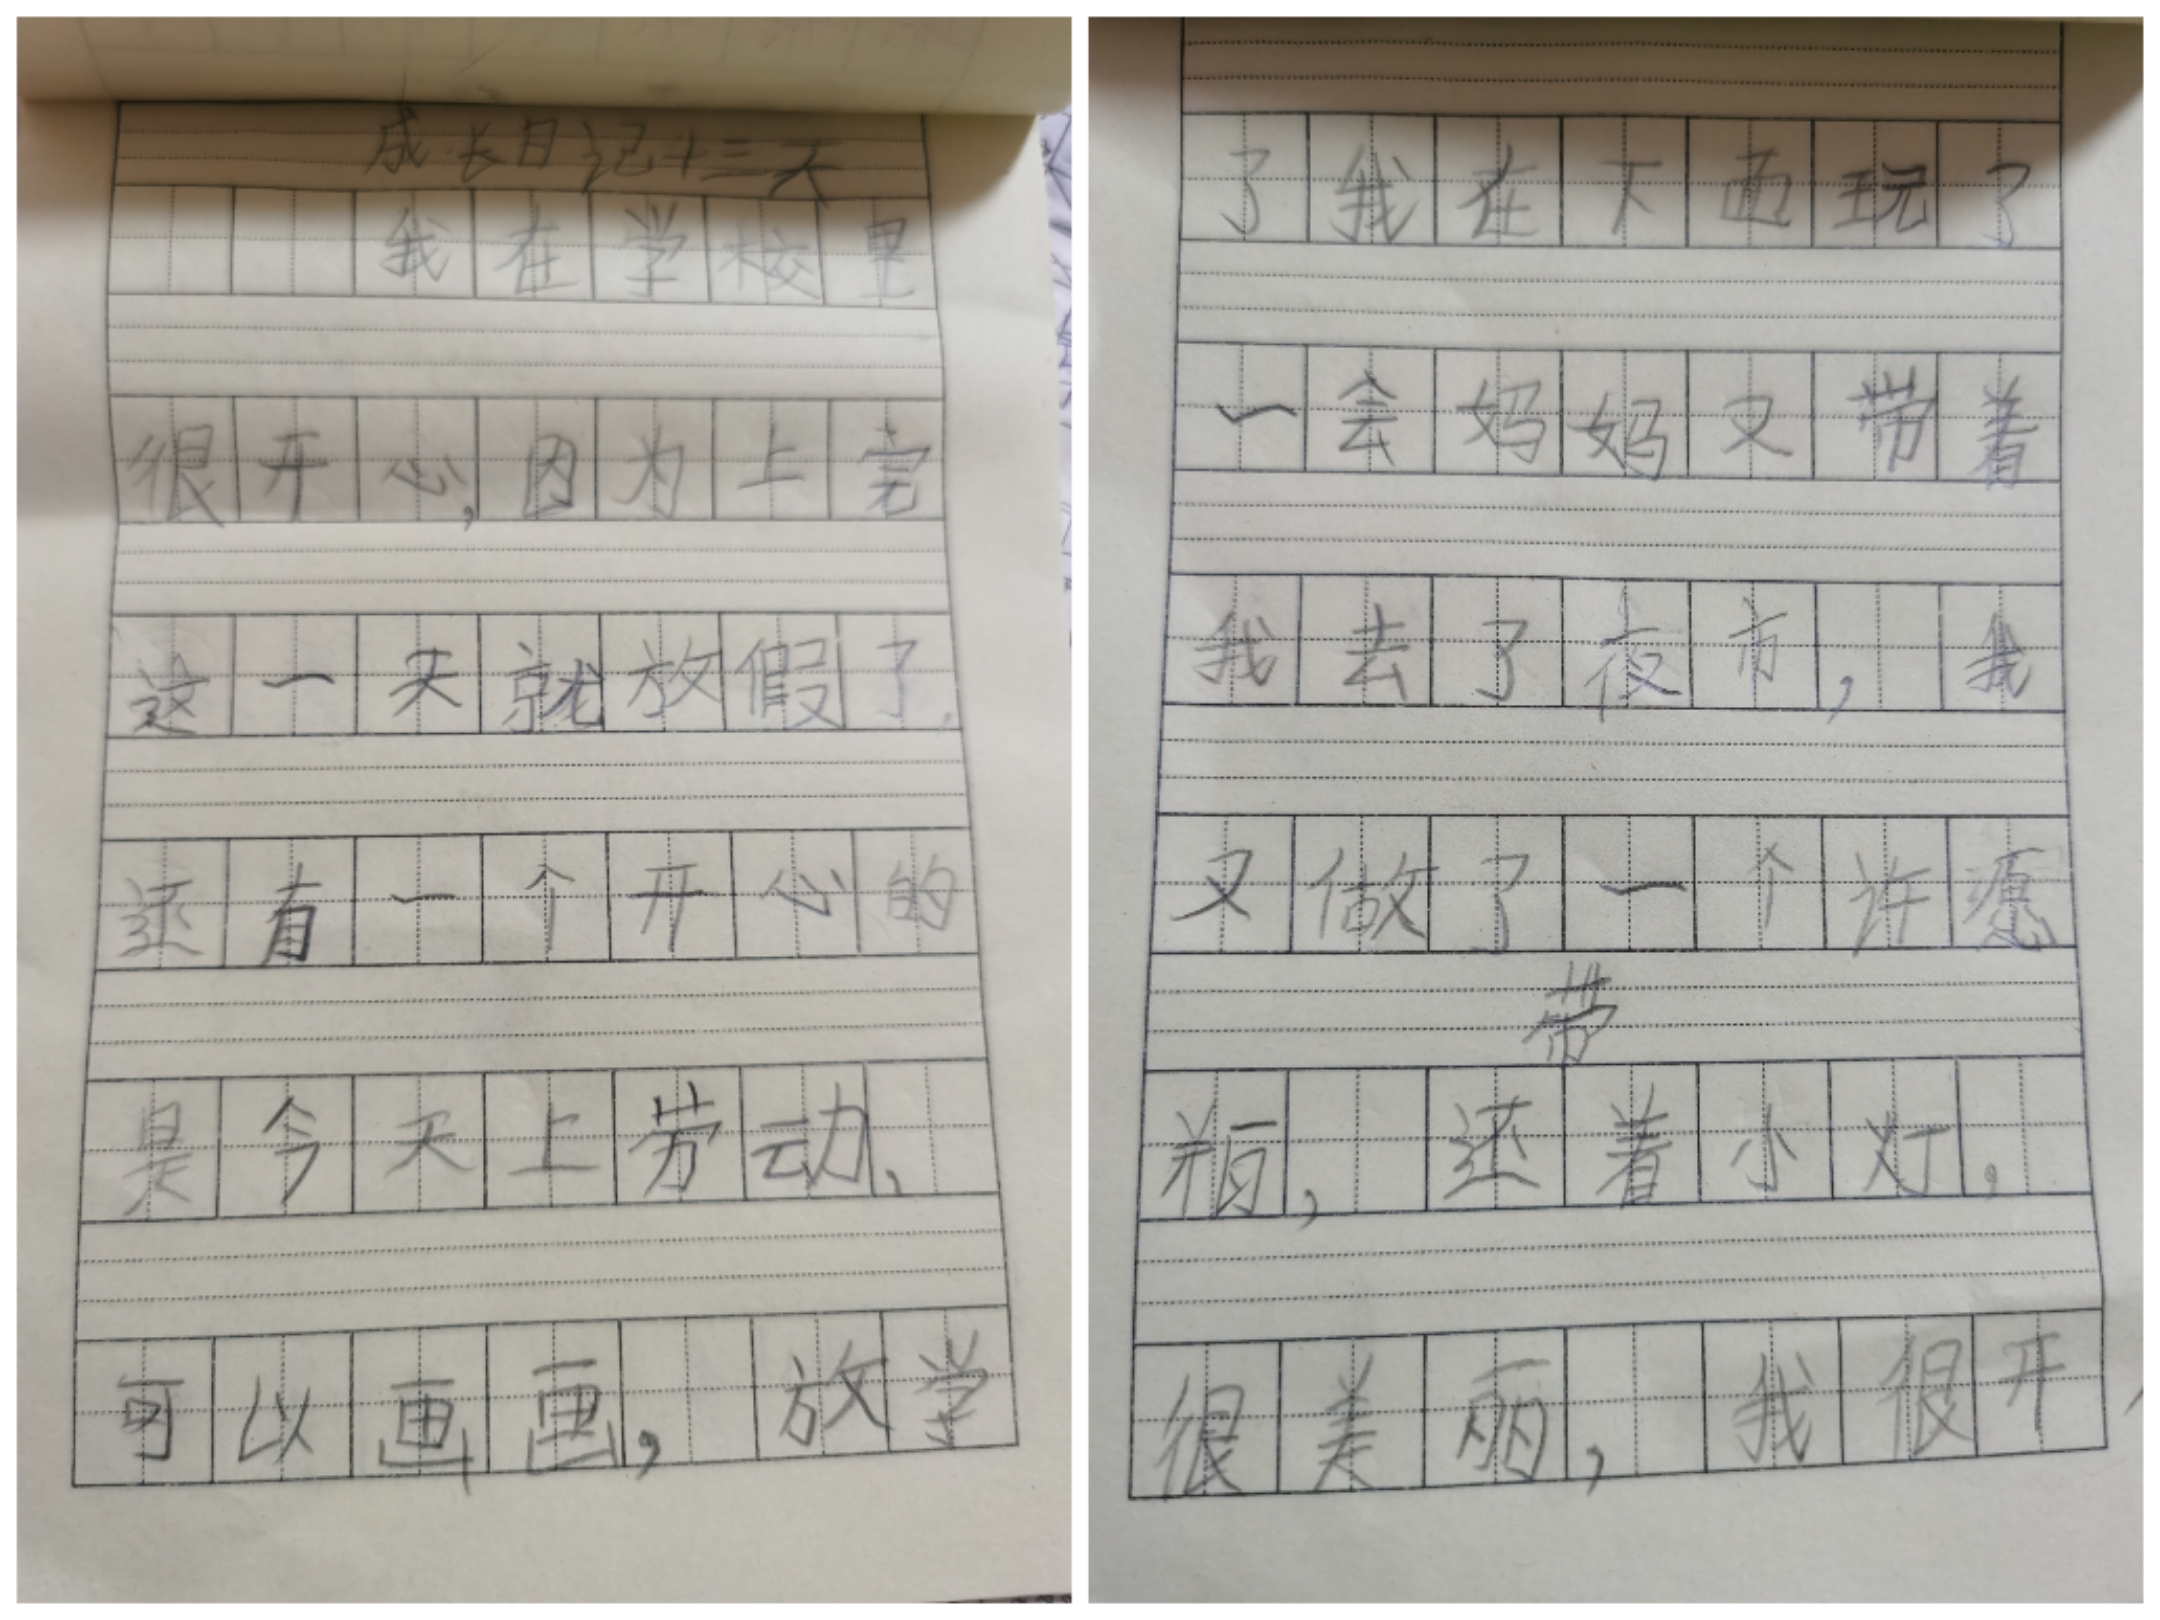 成长日记十三天
我在学校里
很开心,因为上完
这一天就放假了,
还有一个开心的
是今天上劳动,
可以画画,放学
了我在下面玩了
一会妈妈又带着
我去了夜市,我
又做了一个许愿
带
瓶,还着小灯,
很美丽,我很开